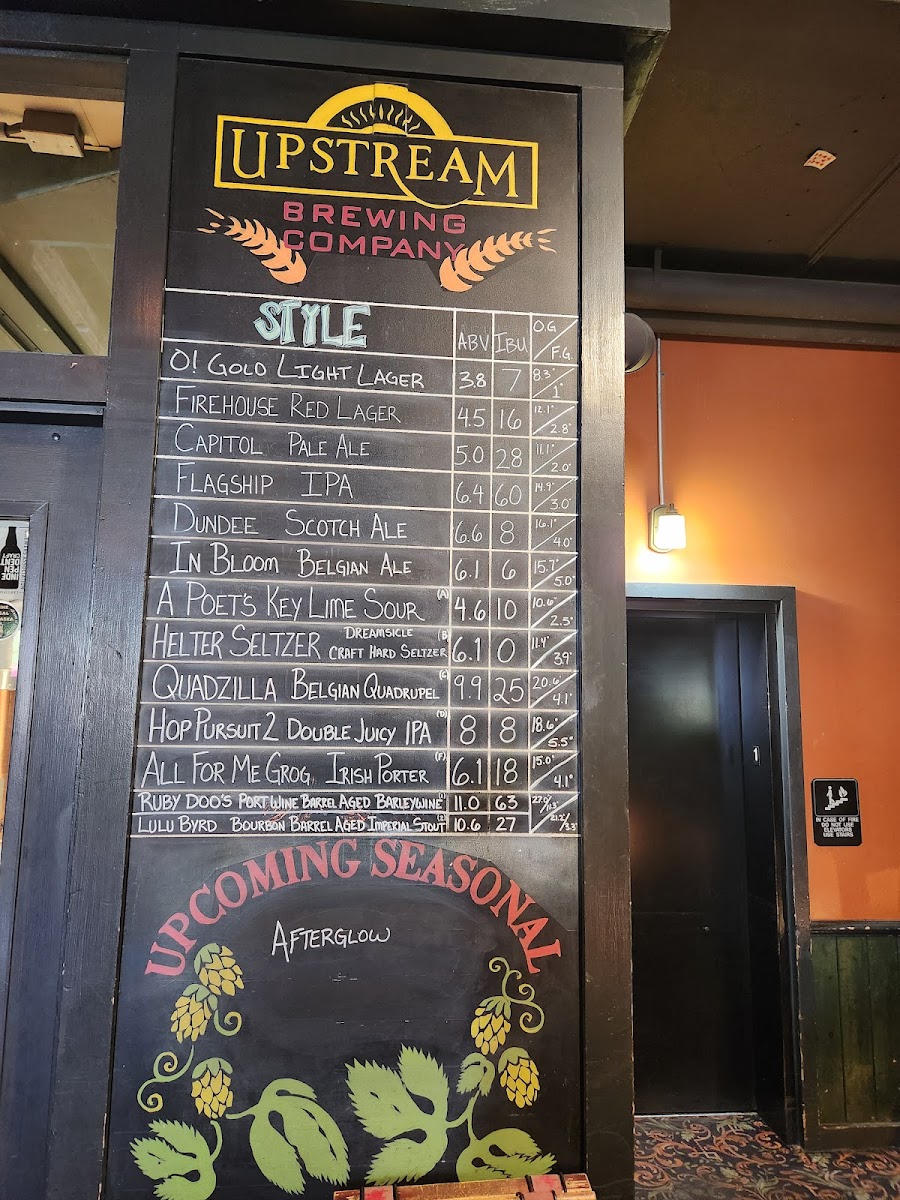 UPSTREAM
BREWING
COMPANY
STYLE ABV IBU O.G / F.G.
O! GOLD LIGHT LAGER 3.8 7 8.3° / 1°
FIREHOUSE RED LAGER 4.5 16 12.1° / 2.8°
CAPITOL PALE ALE 5.0 28 11.1° / 2.0°
FLAGSHIP IPA 6.4 60 14.9° / 3.0°
DUNDEE SCOTCH ALE 6.6 8 16.1° / 4.0°
IN BLOOM BELGIAN ALE 6.1 6 15.7° / 5.0°
A POET'S KEY LIME SOUR (A) 4.6 10 10.6° / 2.5°
HELTER SELTZER DREAMSICLE CRAFT HARD SELTZER (B) 6.1 0 11.4° / 3.9°
QUADZILLA BELGIAN QUADRUPEL (C) 9.9 25 20.6° / 4.1°
HOP PURSUIT 2 DOUBLE JUICY IPA (D) 8 8 18.6° / 5.5°
ALL FOR ME GROG, IRISH PORTER (F) 6.1 18 15.0° / 4.1°
RUBY DOO'S PORT WINE BARREL AGED BARLEYWINE (1) 11.0 63
LULU BYRD BOURBON BARREL AGED IMPERIAL STOUT (2) 10.6 27
UPCOMING SEASONAL
AFTERGLOW
1
IN CASE OF FIRE
DO NOT USE
ELEVATORS
USE STAIRS
INDE
PEN
DENT
CRAFT